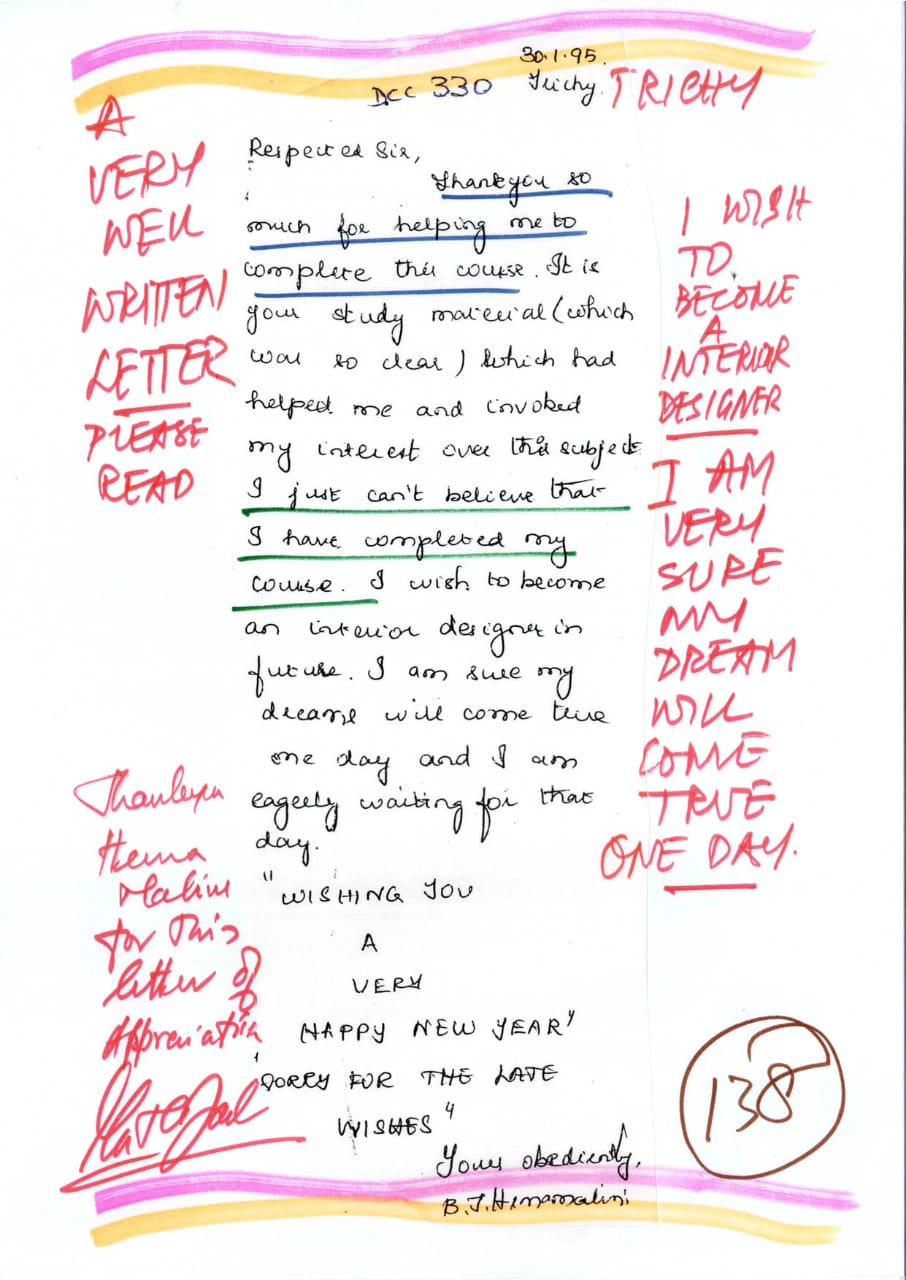 30.1.95.
DCC 330 Trichy. TRICHY
A
VERY
WELL
WRITTEN
LETTER
PLEASE
READ
Respected Sir,
Thankyou so
much for helping me to
complete this course. It is
your study material (which
was so clear) which had
helped me and invoked
my interest over this subject.
I just can't believe that
I have completed my
course. I wish to become
an interior designer in
future. I am sure my
dreams will come true
one day and I am
eagerly waiting for that
day.
"WISHING YOU
A
VERY
HAPPY NEW YEAR"
"SORRY FOR THE LATE
WISHES"
Yours obediently,
B.J.Hemamalini
I WISH
TO
BECOME
A
INTERIOR
DESIGNER
I AM
VERY
SURE
MY
DREAM
WILL
COME
TRUE
ONE DAY.
Thankyou
Hema
Malini
for this
letter of
Appreciation
138